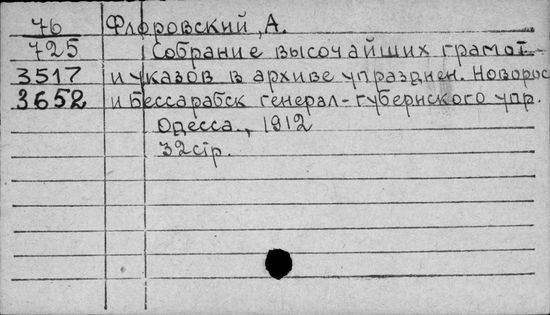 76 Флоровский, А.
725 Собрание высочайших грамот-
3517 и указов в архиве упразднен. Новорос
3652 и Бессарабск генерал-губернского упр.
Одесса, 1912
32 стр.